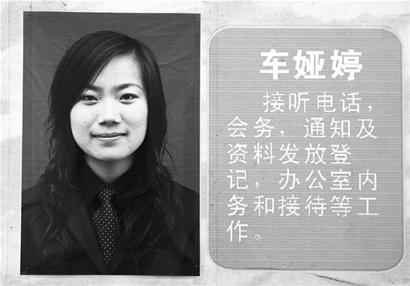 车娅婷
接听电话，
会务，通知及
资料发放登
记，办公室内
务和接待等工
作。